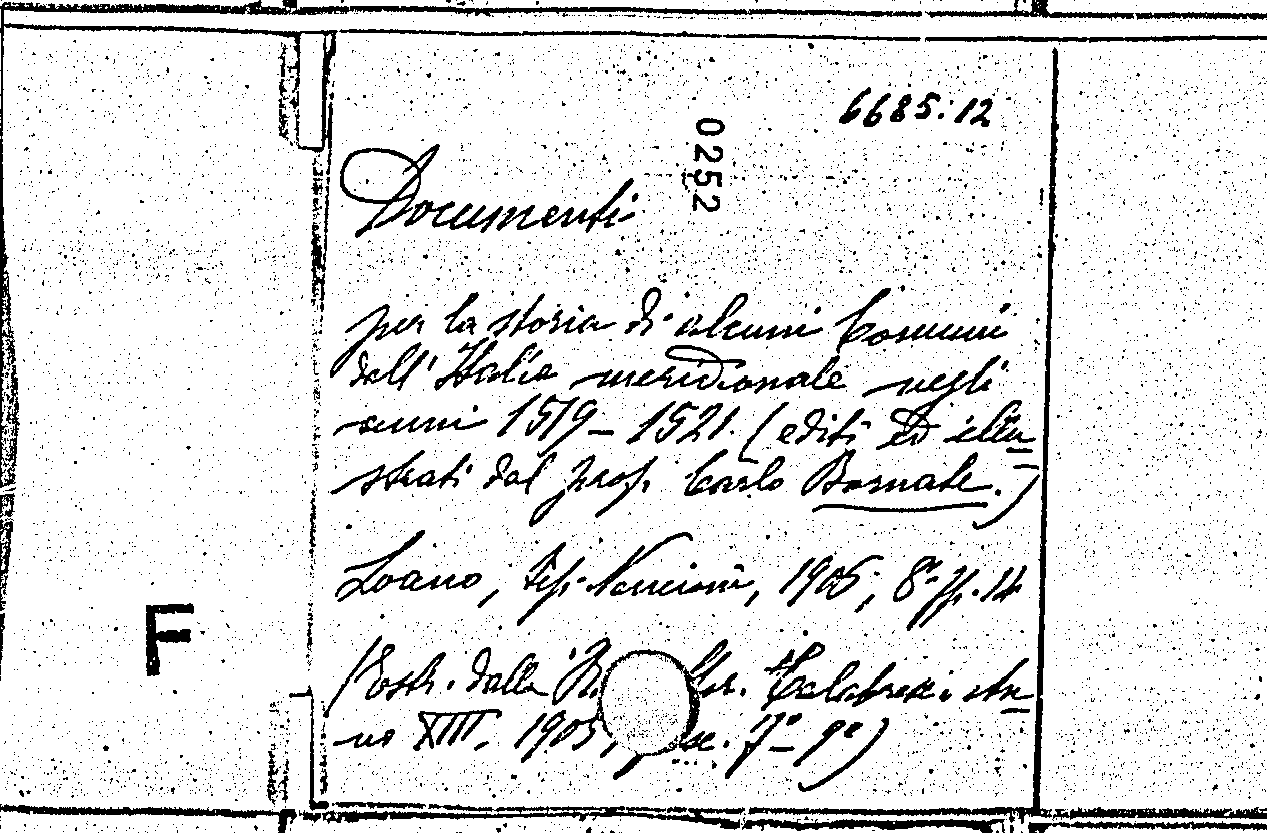 6685:12
0252
Documenti
per la storia di alcuni Comuni
dell'Italia meridionale negli
anni 1519-1521. (editi ed illu-
strati dal prof. Carlo Bornate.)
Loano, tip. 1905, 8° pp. 14
F
(Estr. dalla R. Stor. Calabrese, an-
no XIII. 1905, sc. 7°-9°)